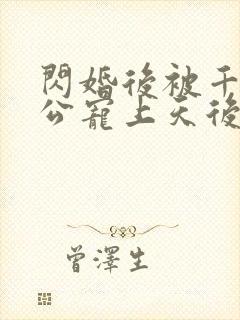 閃婚後被千
公寵上天後
曾澤生